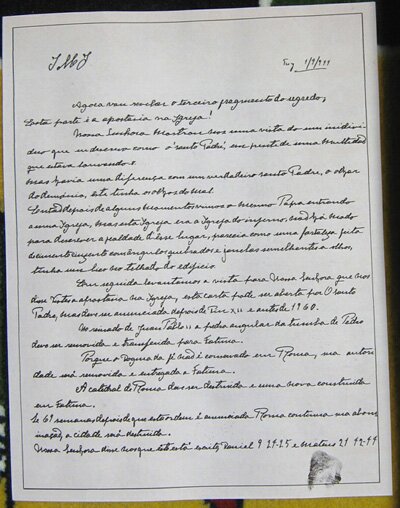 J M J Tuy 1/9/944
Agora vou revelar o terceiro fragmento do segredo;
Esta parte é a apostasia na Igreja!
Nossa Senhora mostrou nos uma vista do um individuo
que eu descrevo como o santo Padre, em frente de uma multidão
que estava louvando o
Mas havia uma diferença com um verdadeiro santo Padre, o olhar
do demónio, este tinha os olhos do mal.
Então depois de alguns momentos vimos o mesmo Papa entrando
a uma Igreja, mas esta Igreja era a Igreja do inferno, não há modo
para descrever a fealdade d'esse lugar, parecia como uma fortaleza feita
de cimento cinzento com ângulos quebrados e janelas semelhantes a olhos,
tinha um bico no telhado do edificio.
Em seguida levantamos a vista para Nossa Senhora que nos
disse Vistes a apostasia na Igreja, esta carta pode ser aberta por O santo
Padre, mas deve ser anunciada depois de Pio XII e antes de 1960.
No reinado de Juan Pablo II a pedra angular da tumba de Pedro
deve ser removida e transferida para Fatima.
Porque o Dogma da fé não é conservado em Roma, sua autori
dade será removida e entregada a Fatima.
A catedral de Roma deve ser destruida e uma nova construida
em Fatima.
Se 69 semanas depois de que esta ordem é anunciada Roma continua sua abom
inação, a cidade será destruida.
Nossa Senhora disse nos que isto está escrito, Daniel 9 24-25 e Mateus 21 42-44